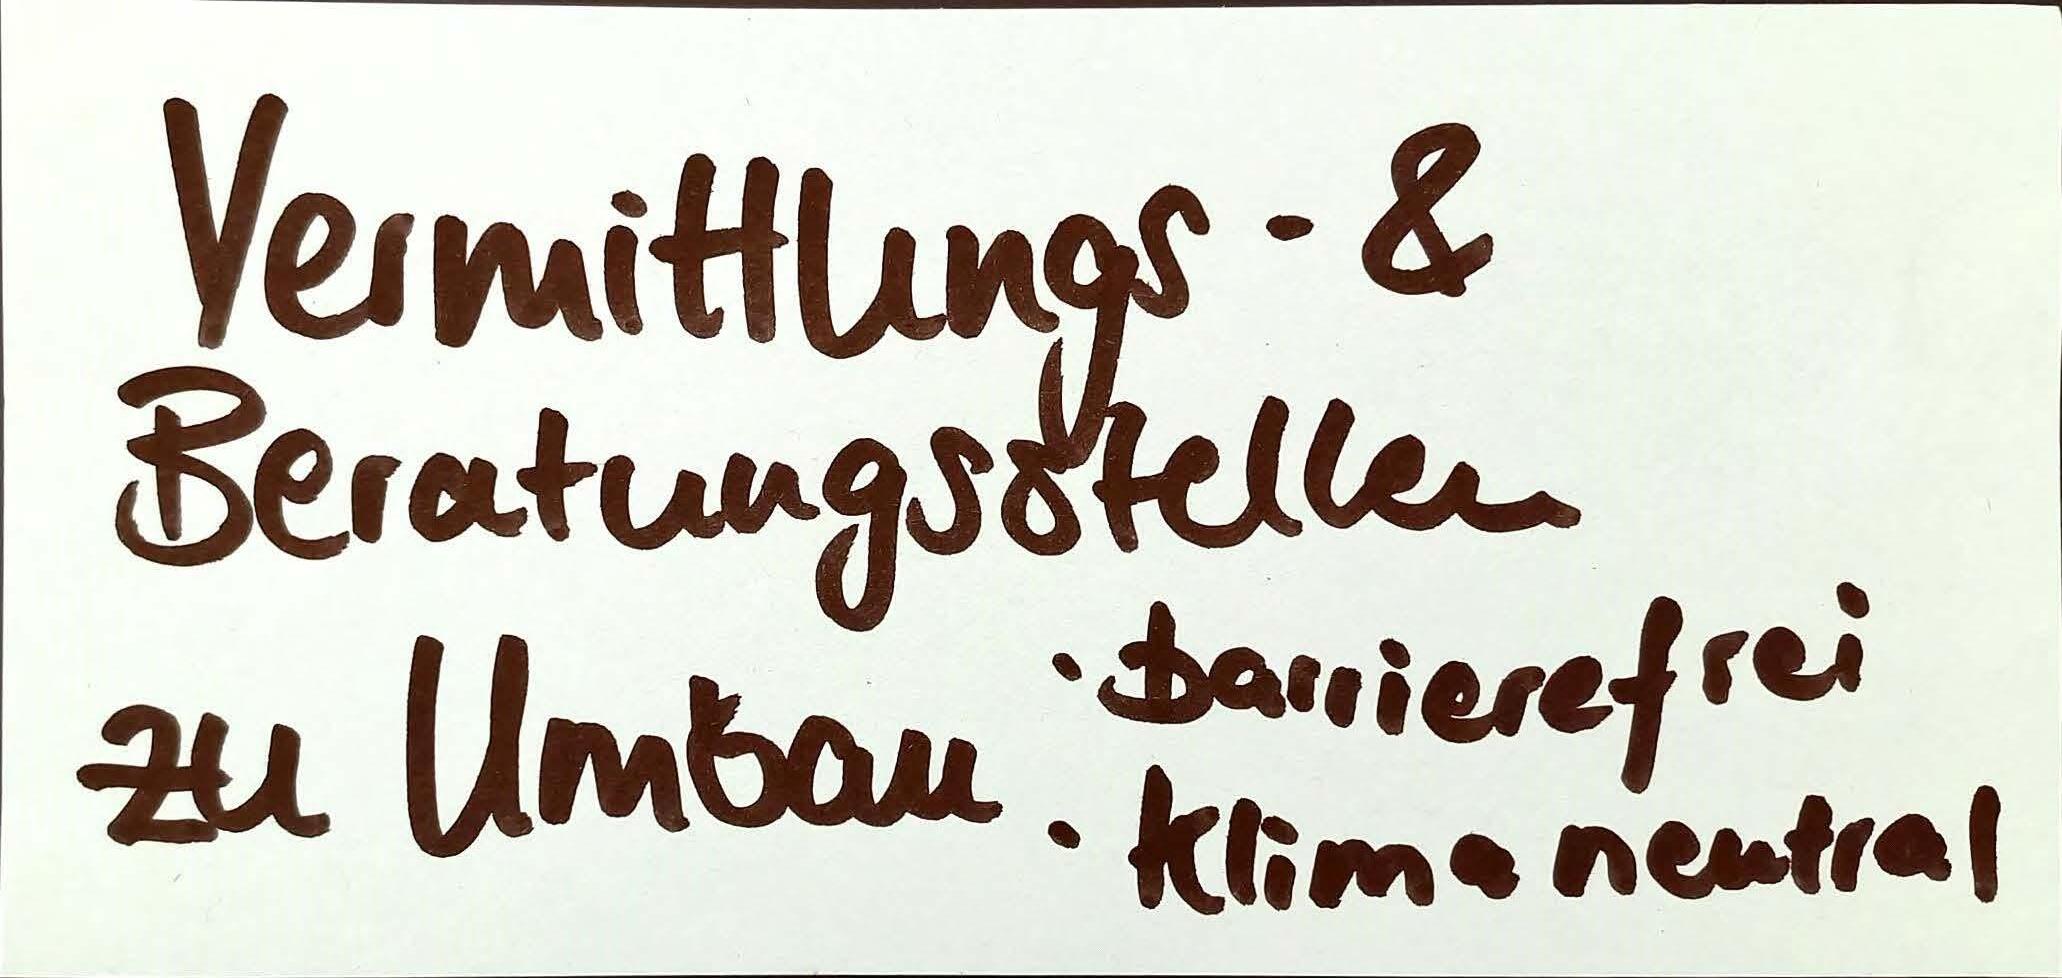 Vermittlungs- &
Beratungsstellen
zu Umbau
· barrierefrei
· klimaneutral